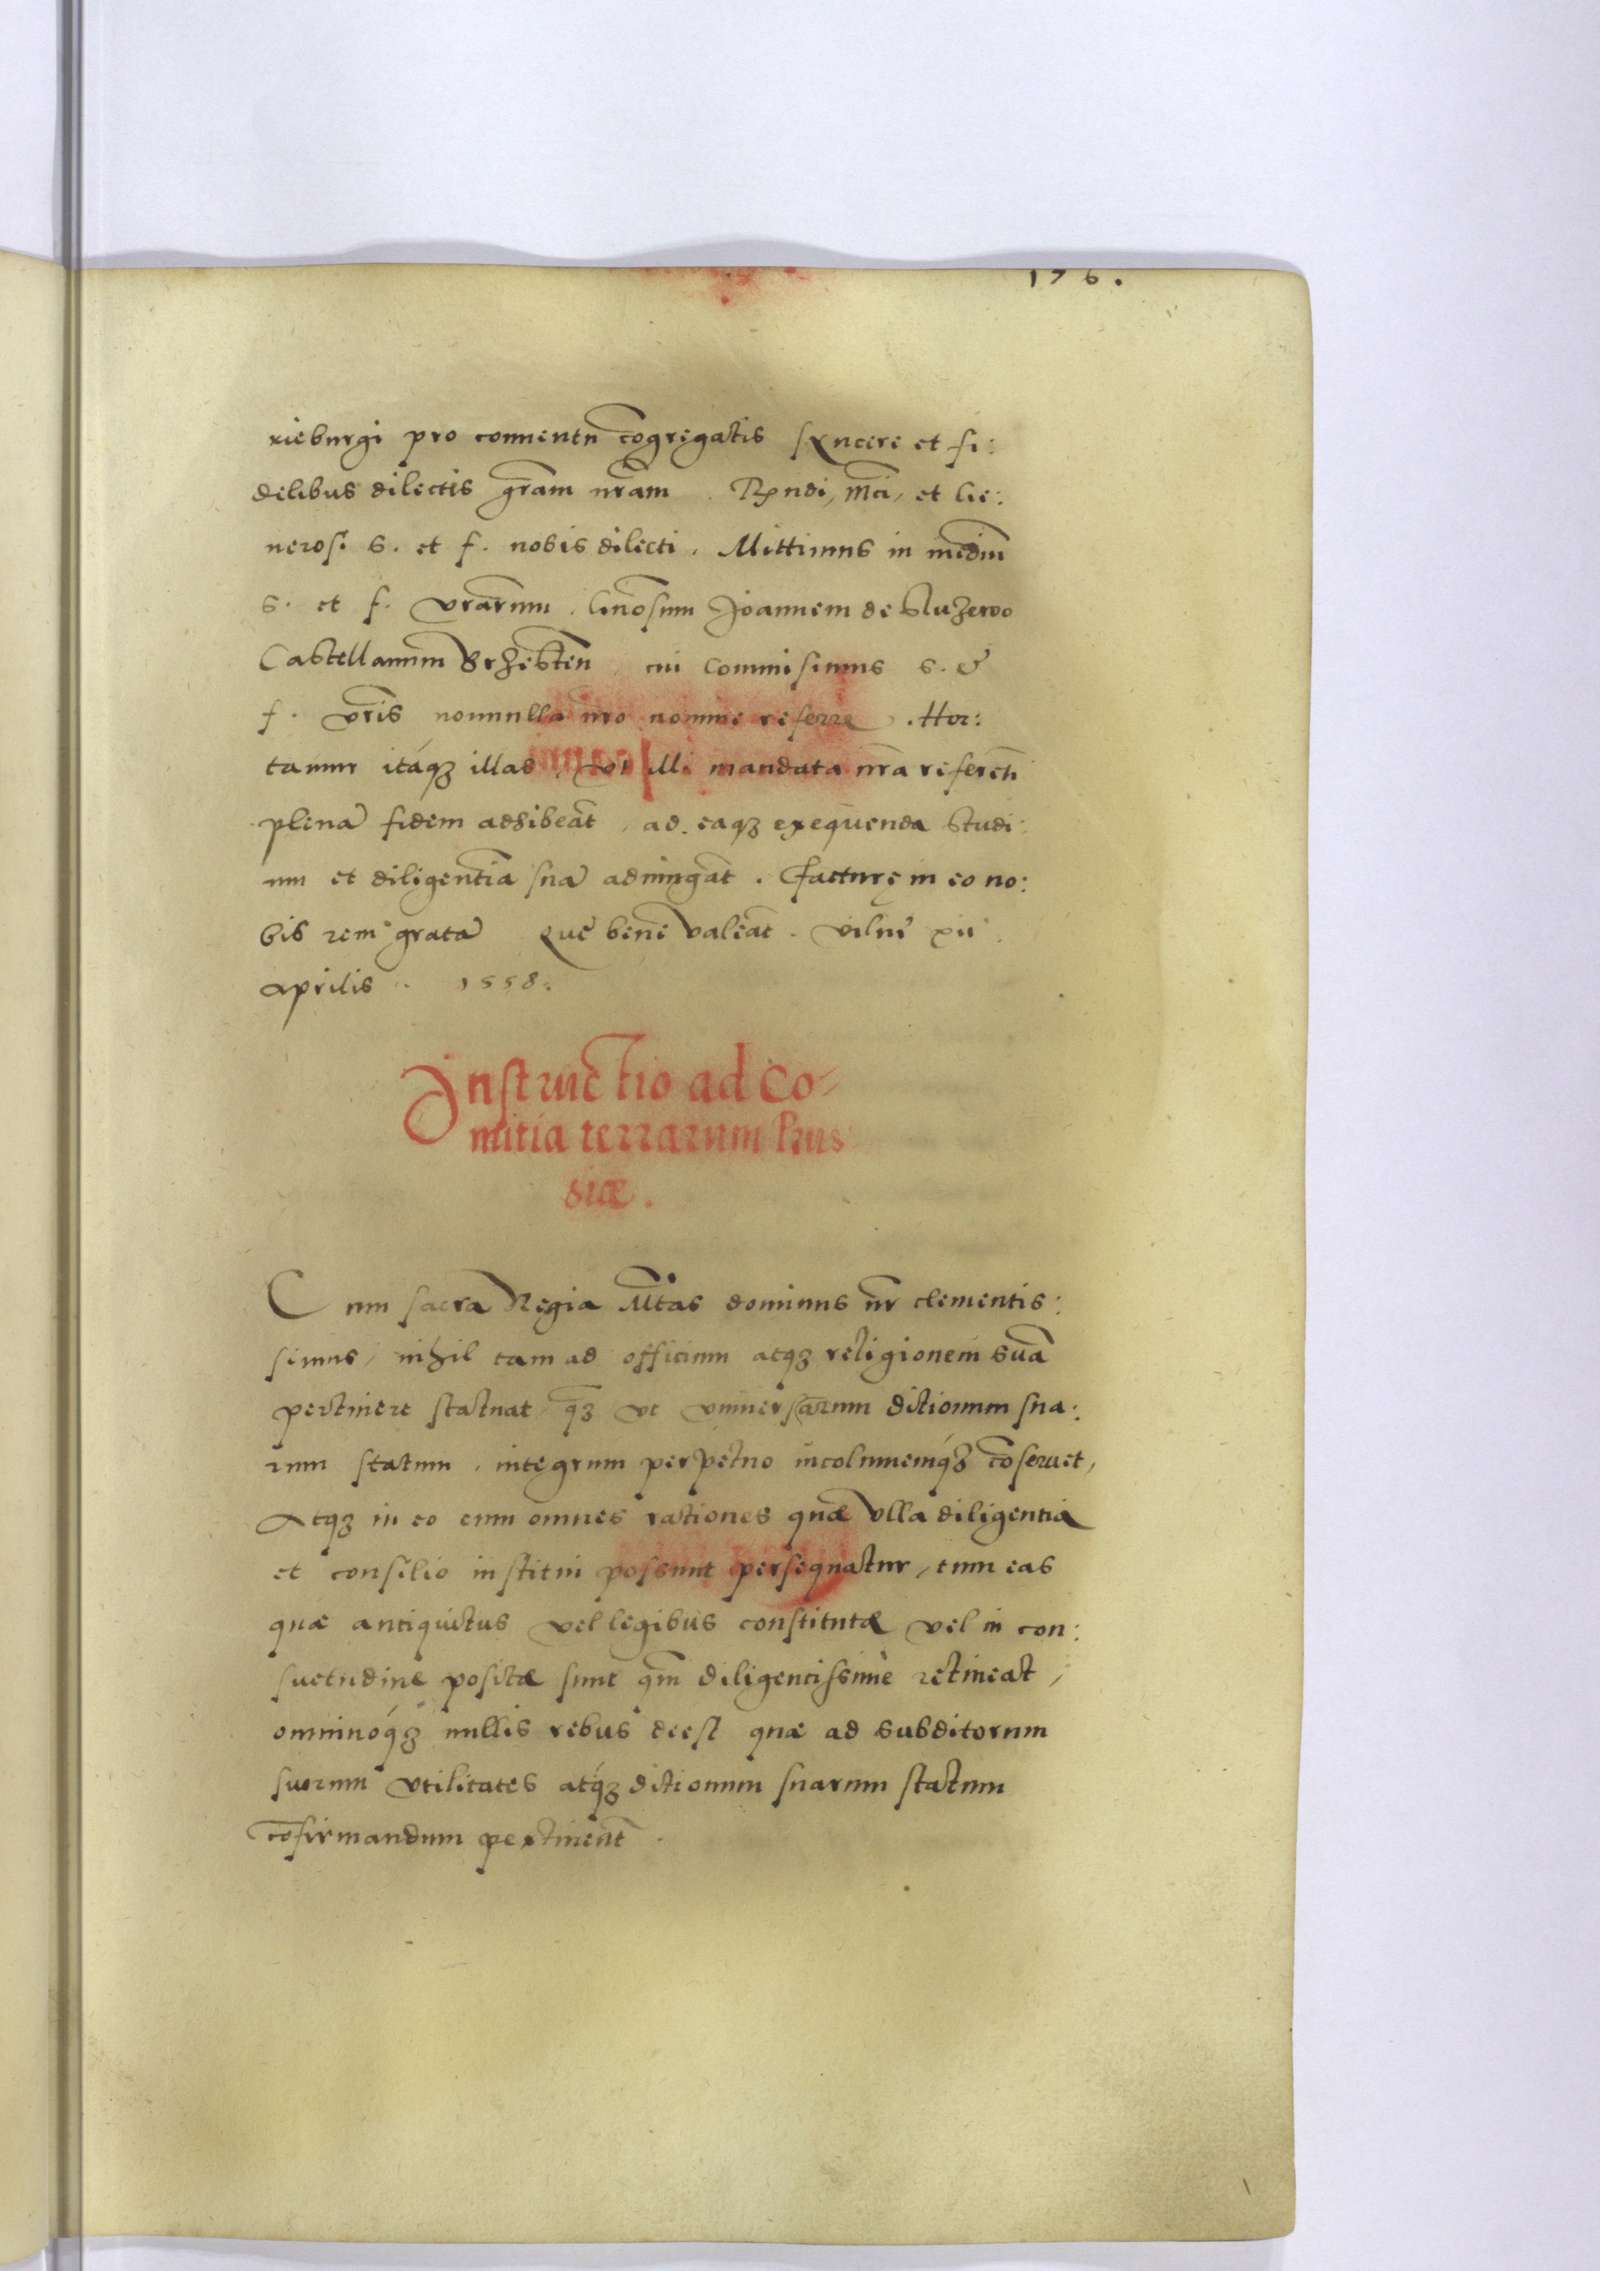 176.
rieburgi pro conuentu cōgregatis syncere et fi:
delibus dilectis grām nrām. Rndi, Mci, et Ge:
nerosi s. et f. nobis dilecti. Mittimus in mediū
s. et f. vrārum. Gnōsum Joannem de Sluzewo
Castellanum Brzestēn, cui commisimus s. &
f. vrīs nonnulla nro nomine referre. Hor:
tamur itáqȝ illas, vt illi mandata nrā referēti
plenā fidem adhibeāt, ad eaqȝ exequenda studi:
um et diligentiā suā adiungāt. Facturę in eo no:
bis rem gratā Quę bene valeāt. Vilnę xii
Aprilis. 1558.
Instructio ad Co-
mitia terrarum Prus
siæ.
Cum sacra Regia Mtas dominus nr clementis:
simus, nihil tam ad officium atqȝ religionem suā
pertinere statuat, qȝ vt vniuersarum ditionum sua:
rum statum, integrum perpetuo incolumemqȝ cōseruet,
Atqȝ in eo cum omnes rationes quæ vlla diligentia
et consilio institui possunt persequatur, tum eas
quæ antiquitus vel legibus constitutæ vel in con:
suetudine positæ sunt qm diligentissime retineat,
omninóqȝ nullis rebus deest quæ ad subditorum
suorum vtilitates atqȝ ditionum suarum statum
cōfirmandum pertinent.